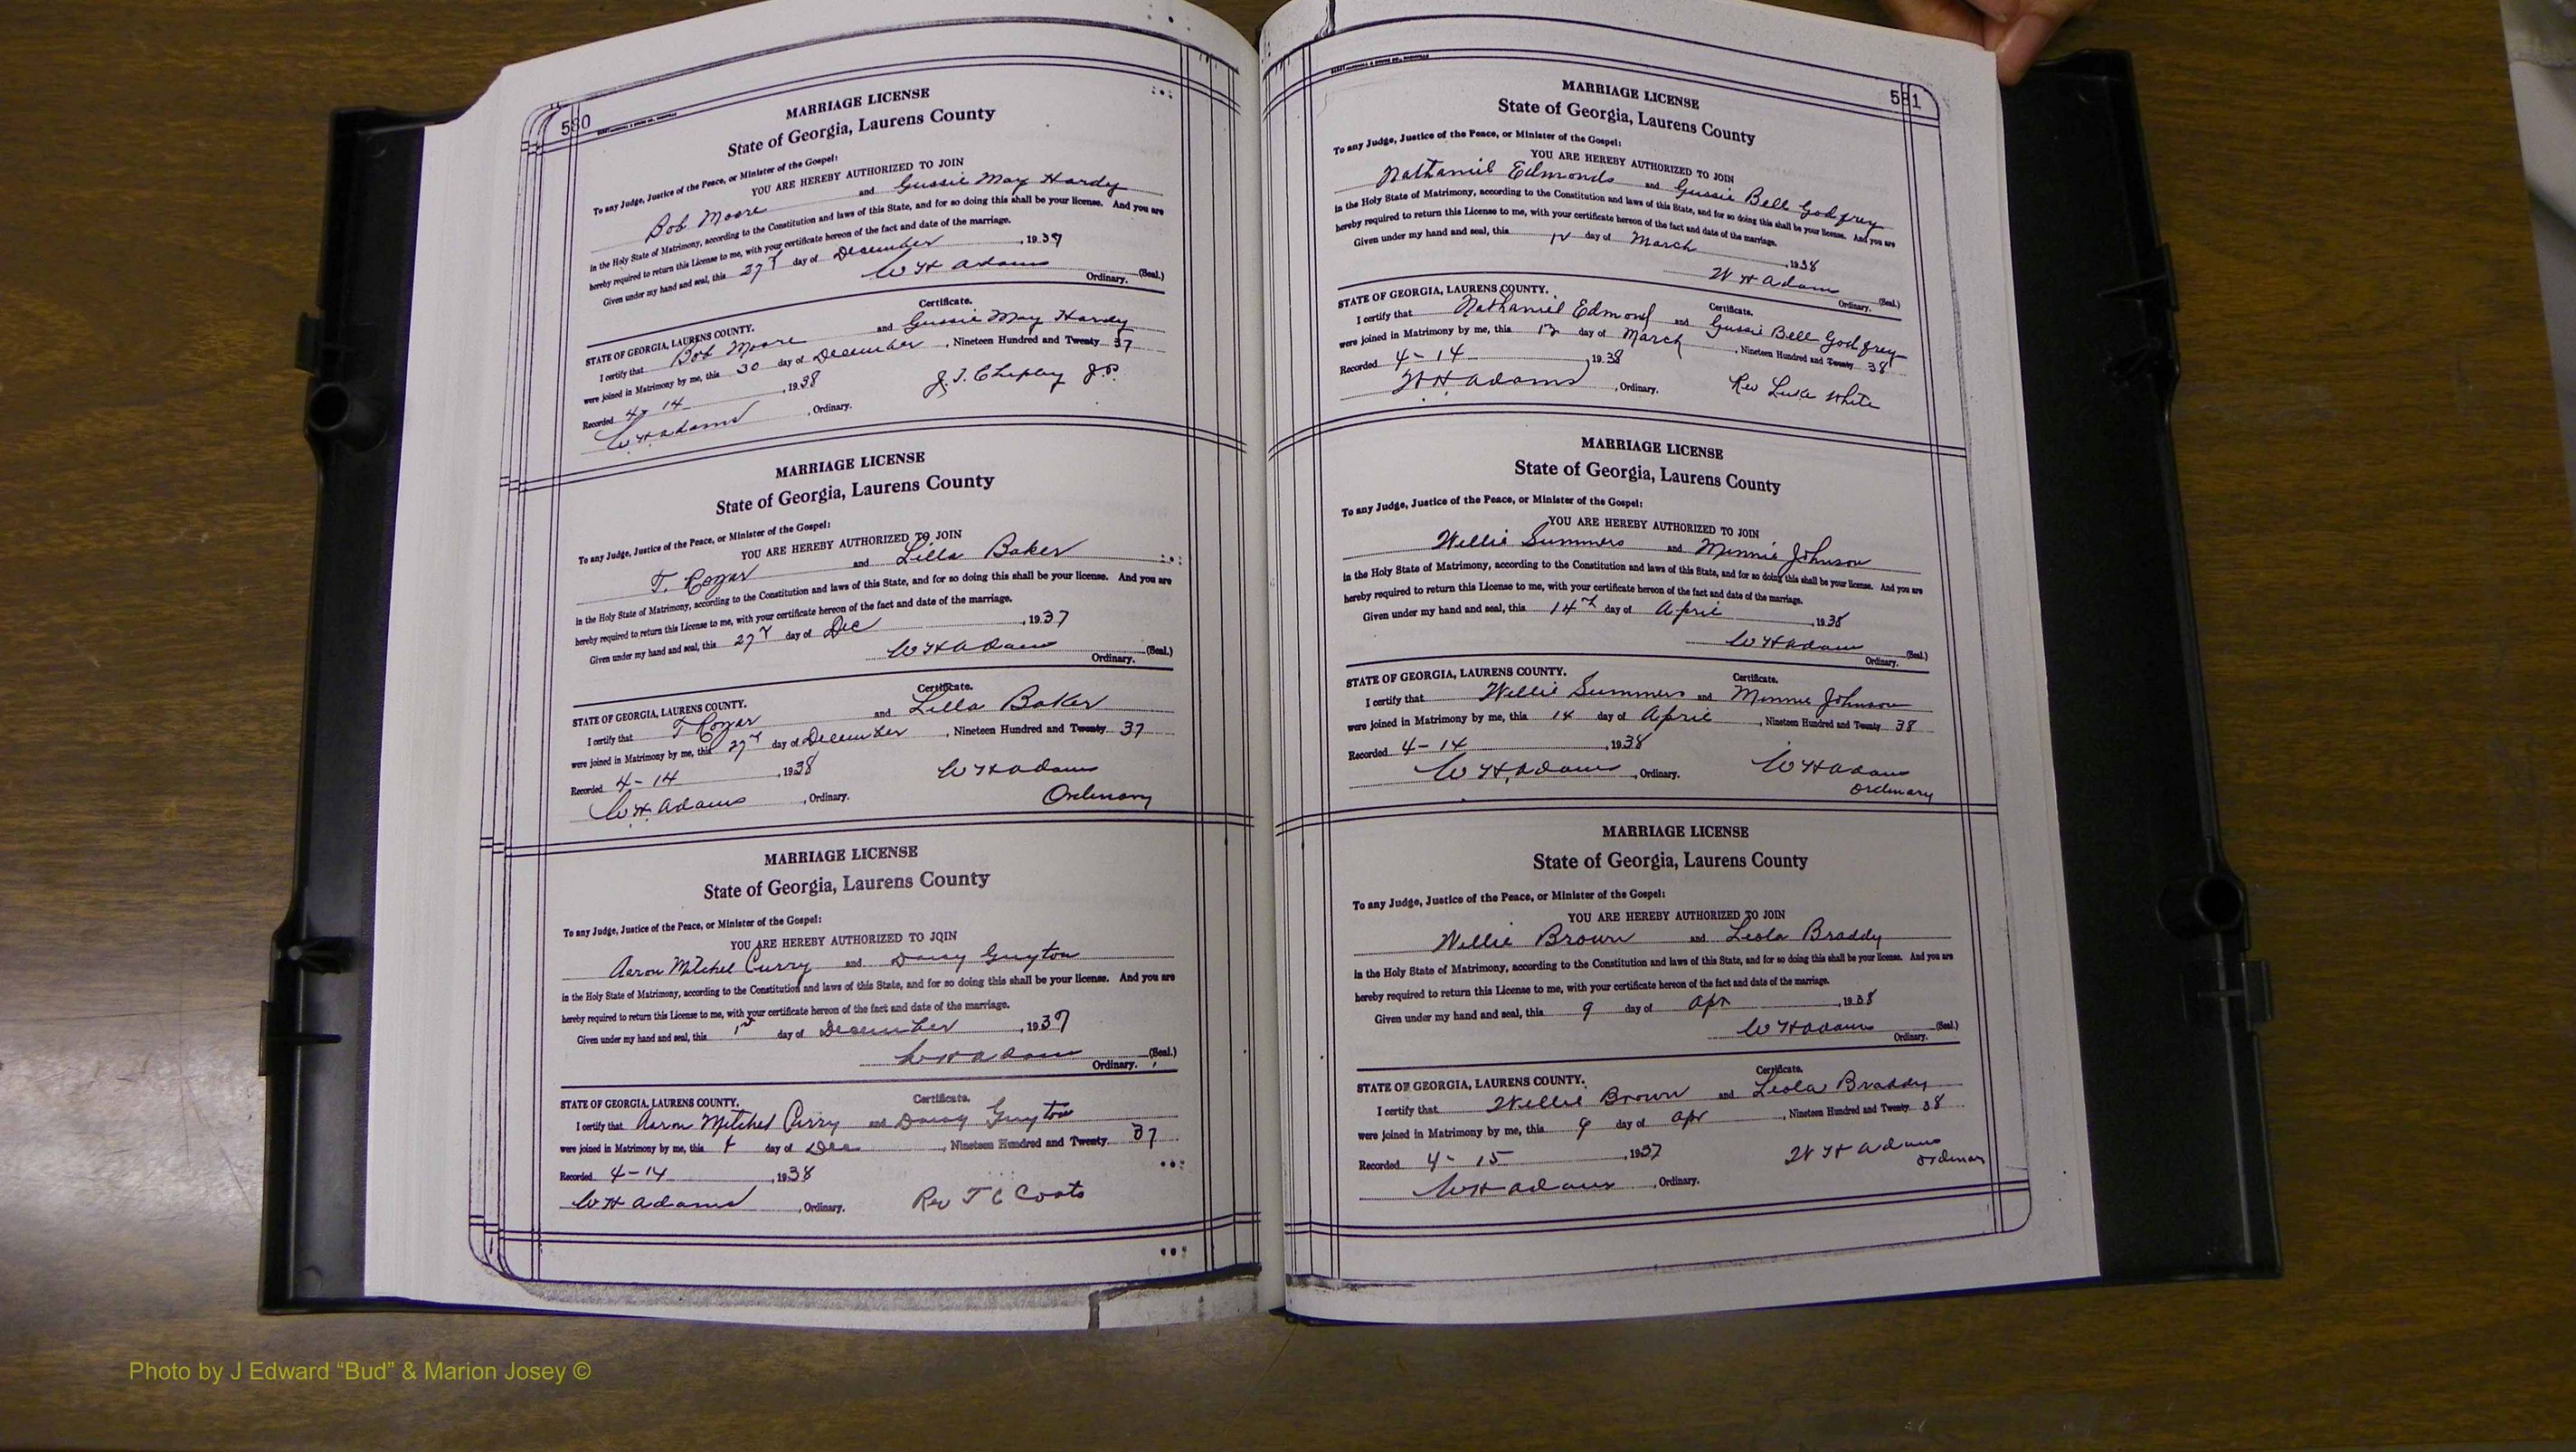 580
MARRIAGE LICENSE
State of Georgia, Laurens County
To any Judge, Justice of the Peace, or Minister of the Gospel:
YOU ARE HEREBY AUTHORIZED TO JOIN
Bob Moore and Gussie May Hardy
in the Holy State of Matrimony, according to the Constitution and laws of this State, and for so doing this shall be your license. And you are
hereby required to return this License to me, with your certificate hereon of the fact and date of the marriage.
Given under my hand and seal, this 27 day of December, 1937
W H Adams (Seal.)
Ordinary.
Certificate.
STATE OF GEORGIA, LAURENS COUNTY.
I certify that Bob Moore and Gussie May Hardy
were joined in Matrimony by me, this 30 day of December, Nineteen Hundred and Twenty 37
Recorded 4-14, 1938 J.T. J.P.
W H Adams, Ordinary.
MARRIAGE LICENSE
State of Georgia, Laurens County
To any Judge, Justice of the Peace, or Minister of the Gospel:
YOU ARE HEREBY AUTHORIZED TO JOIN
T. and Lilla Baker
in the Holy State of Matrimony, according to the Constitution and laws of this State, and for so doing this shall be your license. And you are
hereby required to return this License to me, with your certificate hereon of the fact and date of the marriage.
Given under my hand and seal, this 27 day of Dec, 1937
W H Adams (Seal.)
Ordinary.
Certificate.
STATE OF GEORGIA, LAURENS COUNTY.
I certify that T and Lilla Baker
were joined in Matrimony by me, this 27 day of December, Nineteen Hundred and Twenty 37
Recorded 4-14, 1938 W H Adams
W H Adams, Ordinary. Ordinary
MARRIAGE LICENSE
State of Georgia, Laurens County
To any Judge, Justice of the Peace, or Minister of the Gospel:
YOU ARE HEREBY AUTHORIZED TO JOIN
Aaron Mitchel Curry and Daisy Guyton
in the Holy State of Matrimony, according to the Constitution and laws of this State, and for so doing this shall be your license. And you are
hereby required to return this License to me, with your certificate hereon of the fact and date of the marriage.
Given under my hand and seal, this 1st day of December, 1937
W H Adams (Seal.)
Ordinary.
Certificate.
STATE OF GEORGIA, LAURENS COUNTY.
I certify that Aaron Mitchel Curry and Daisy Guyton
were joined in Matrimony by me, this 4 day of Dec, Nineteen Hundred and Twenty 37
Recorded 4-14, 1938
W H Adams, Ordinary. Rev T C Coats
581
MARRIAGE LICENSE
State of Georgia, Laurens County
To any Judge, Justice of the Peace, or Minister of the Gospel:
YOU ARE HEREBY AUTHORIZED TO JOIN
Nathaniel Edmonds and Gussie Bell Godfrey
in the Holy State of Matrimony, according to the Constitution and laws of this State, and for so doing this shall be your license. And you are
hereby required to return this License to me, with your certificate hereon of the fact and date of the marriage.
Given under my hand and seal, this 12 day of March, 1938
W H Adams (Seal.)
Ordinary.
STATE OF GEORGIA, LAURENS COUNTY. Certificate.
I certify that Nathaniel Edmond and Gussie Bell Godfrey
were joined in Matrimony by me, this day of March, Nineteen Hundred and Twenty 38
Recorded 4-14, 1938
W H Adams, Ordinary. Rev Luke White
MARRIAGE LICENSE
State of Georgia, Laurens County
To any Judge, Justice of the Peace, or Minister of the Gospel:
YOU ARE HEREBY AUTHORIZED TO JOIN
Willie Summers and Minnie Johnson
in the Holy State of Matrimony, according to the Constitution and laws of this State, and for so doing this shall be your license. And you are
hereby required to return this License to me, with your certificate hereon of the fact and date of the marriage.
Given under my hand and seal, this 14th day of April, 1938
W H Adams (Seal.)
Ordinary.
STATE OF GEORGIA, LAURENS COUNTY. Certificate.
I certify that Willie Summers and Minnie Johnson
were joined in Matrimony by me, this 14 day of April, Nineteen Hundred and Twenty 38
Recorded 4-14, 1938
W H Adams, Ordinary. W H Adams
ordinary
MARRIAGE LICENSE
State of Georgia, Laurens County
To any Judge, Justice of the Peace, or Minister of the Gospel:
YOU ARE HEREBY AUTHORIZED TO JOIN
Willie Brown and Leola Braddy
in the Holy State of Matrimony, according to the Constitution and laws of this State, and for so doing this shall be your license. And you are
hereby required to return this License to me, with your certificate hereon of the fact and date of the marriage.
Given under my hand and seal, this 9 day of Apr, 1938
W H Adams (Seal.)
Ordinary.
Certificate.
STATE OF GEORGIA, LAURENS COUNTY.
I certify that Willie Brown and Leola Braddy
were joined in Matrimony by me, this 9 day of Apr, Nineteen Hundred and Twenty 38
Recorded 4-15, 1937 W H Adams
W H Adams, Ordinary. ordinary
Photo by J Edward “Bud” & Marion Josey ©